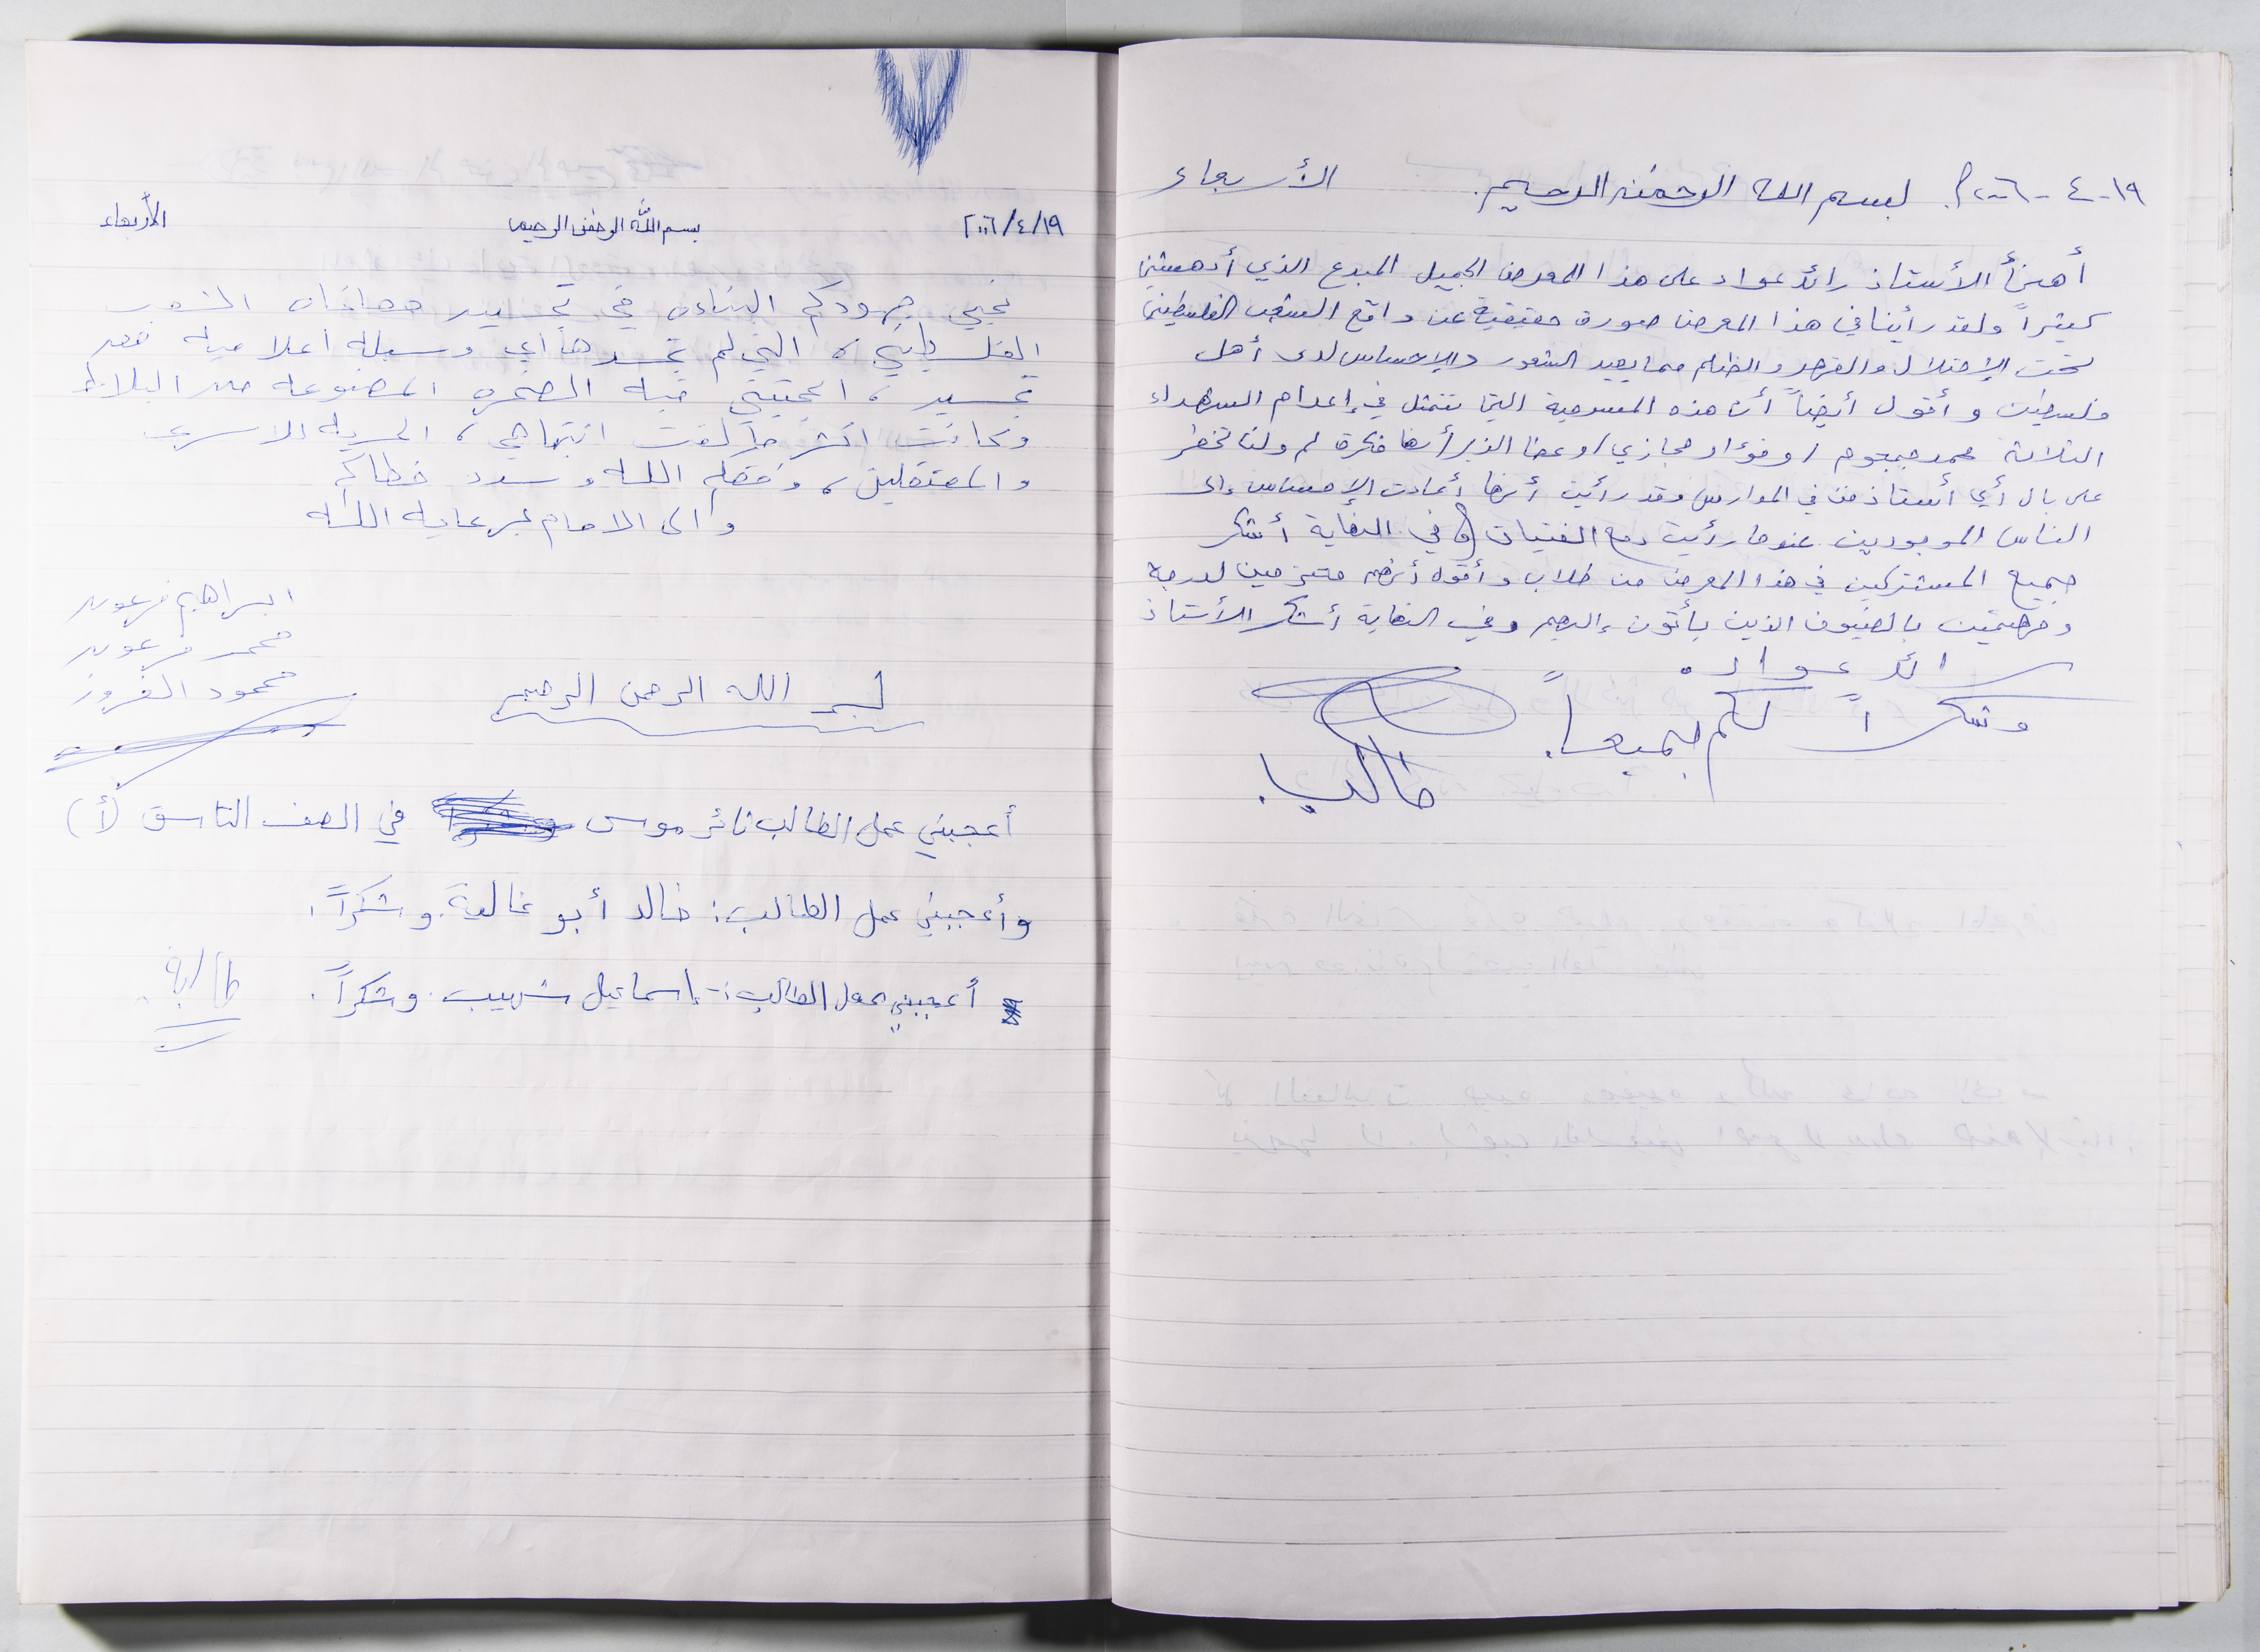 ١٩-٤-٢٠٠٦م. بسم الله الرحمن الرحيم. الأربعاء
أهنأ الأستاذ رائد عواد على هذا المعرض الجميل المبدع الذي أدهشني
كثيراً ولقد رأينا في هذا المعرض صورة حقيقية عن واقع الشعب الفلسطيني
تحت الإحتلال والقهر والظلم مما يعيد الشعور والإحساس لدى أهل
فلسطين وأقول أيضاً أن هذه المسرحية التي تتمثل في إعدام الشهداء
الثلاثة محمد جمجوم / وفؤاد حجازي / وعطا الزير أنها فكرة لم ولن تخطر
على بال أي أستاذ من في المدارس وقد رأيت أنها أعادت الإحساس إلى
الناس الموجودين عندما رأيت دمع الفتيات وفي النهاية أشكر
جميع المشتركين في هذا المعرض من طلاب وأقول أنهم ملتزمين لدرجة
ومهتمين بالضيوف الذين يأتون إليهم وفي النهاية أشكر الأستاذ
رائد عواد.
وشكراً لكم جميعاً.
طالب.
١٩/٤/٢٠٠٦ بسم الله الرحمن الرحيم الأربعاء
نحيي جهودكم البناءه في تجسيد معاناه الشعب
الفلسطيني، التي لم تجسدها أي وسيلة اعلامية
تجسيد، اعجبتني قبة الصخره المصنوعه من البلاط
وكانت اكثر ما لفت انتباهي، الحرية للاسرى
والمعتقلين، وفقكم الله وسدد خطاكم
والى الامام برعاية الله
ابراهيم فرعون
محمد فرعون
محمود الفروز
بسم الله الرحمن الرحيم
أعجبني عمل الطالب ثائر موسى في الصف التاسع (أ)
وأعجبني عمل الطالب: خالد أبو غالية. وشكراً.
أعجبني عمل الطالب:- إسماعيل شهيب. وشكراً.
طالبة.